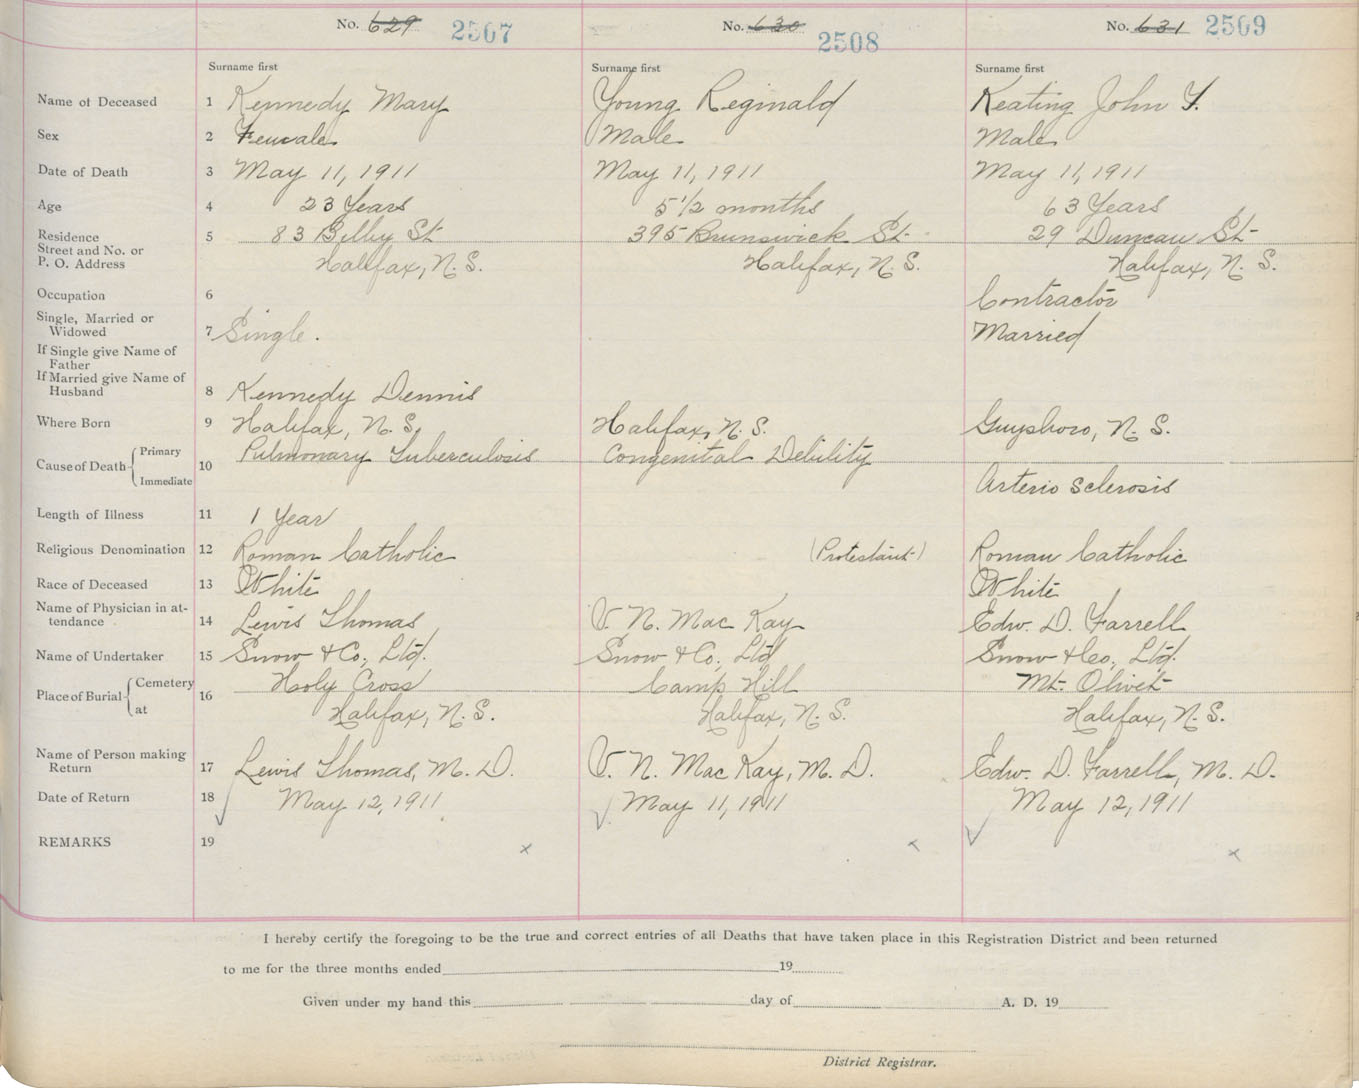 No. 629 2507 No. 630 2508 No. 631 2509
Surname first Surname first Surname first
Name of Deceased 1 Kennedy Mary Young Reginald Keating John F.
Sex 2 Female Male Male
Date of Death 3 May 11, 1911 May 11, 1911 May 11, 1911
Age 4 23 Years 5 1/2 months 63 Years
Residence 5 83 Bilby St. 395 Brunswick St. 29 Duncan St.
Street and No. or
P. O. Address Halifax, N. S. Halifax, N. S. Halifax, N. S.
Occupation 6 Contractor
Single, Married or
Widowed 7 Single. Married
If Single give Name of
Father
If Married give Name of
Husband 8 Kennedy Dennis
Where Born 9 Halifax, N. S. Halifax, N. S. Guysboro, N. S.
Primary Pulmonary Tuberculosis Congenital Debility
Cause of Death 10
Immediate Arterio Sclerosis
Length of Illness 11 1 Year
Religious Denomination 12 Roman Catholic (Protestant) Roman Catholic
Race of Deceased 13 White White
Name of Physician in at-
tendance 14 Lewis Thomas V. N. Mac Kay Edw. D. Farrell
Name of Undertaker 15 Snow & Co., Ltd. Snow & Co., Ltd Snow & Co., Ltd.
Cemetery Holy Cross Camp Hill Mt. Olivet
Place of Burial 16
at Halifax, N. S. Halifax, N. S. Halifax, N. S.
Name of Person making
Return 17 Lewis Thomas, M. D. V. N. Mac Kay, M. D. Edw. D. Farrell, M. D.
Date of Return 18 May 12, 1911 May 11, 1911 May 12, 1911
REMARKS 19 x x x
I hereby certify the foregoing to be the true and correct entries of all Deaths that have taken place in this Registration District and been returned
to me for the three months ended 19
Given under my hand this day of A. D. 19
District Registrar.